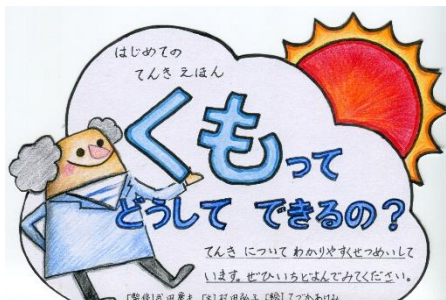 はじめての
てんき えほん
くもって
どうして できるの？
てんき について わかりやすくせつめいして
います。ぜひいちどよんでみてください。